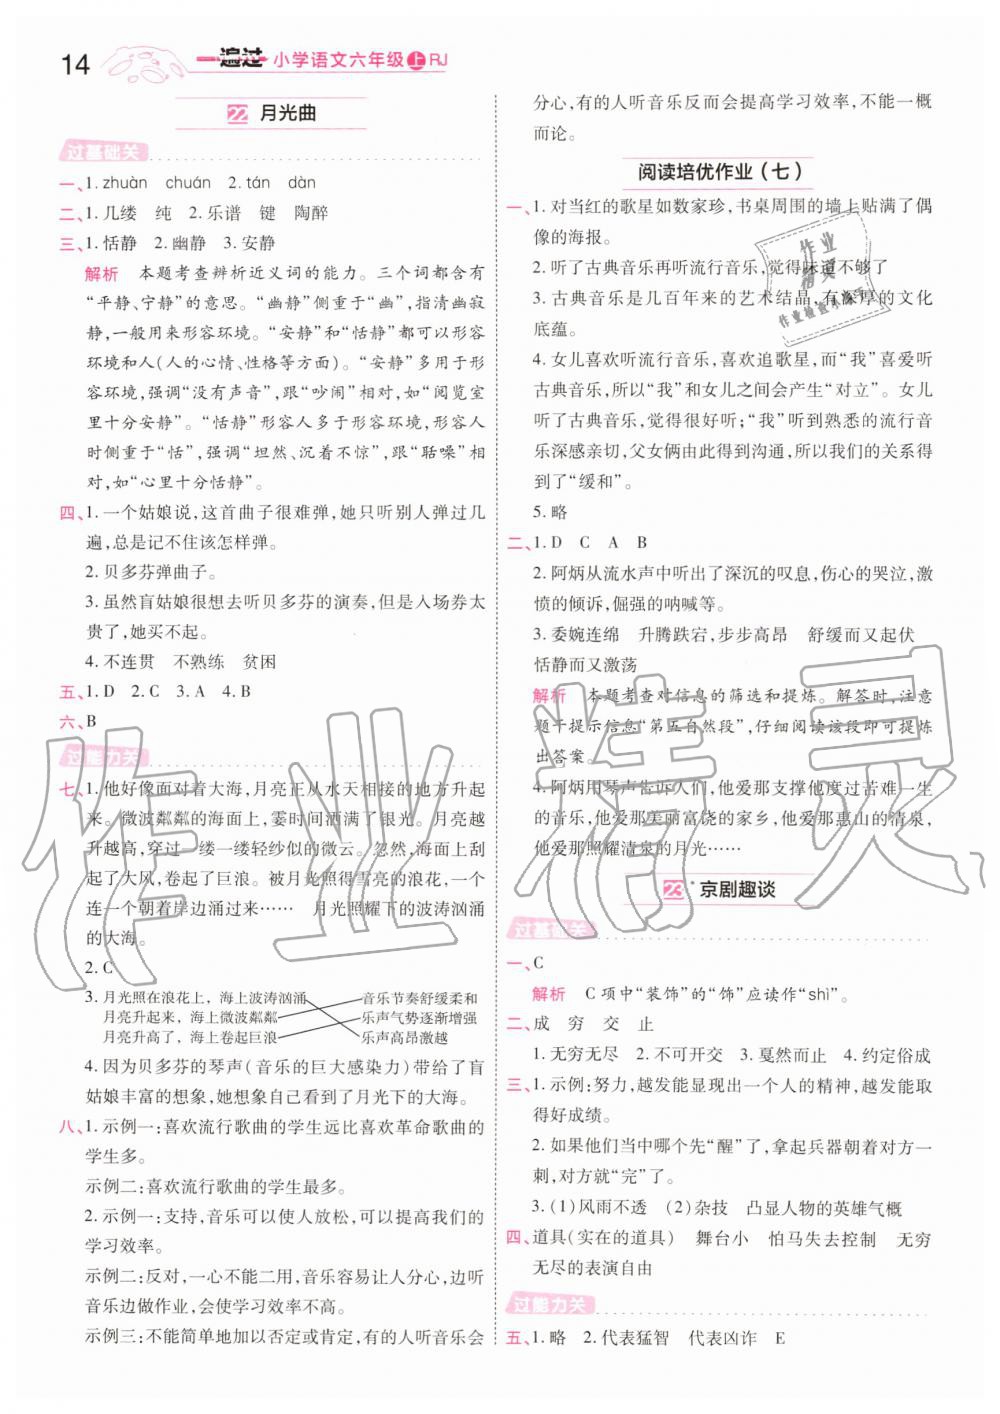 14
一遍过 小学语文六年级 上 RJ
22 月光曲
过基础关
一、1. zhuàn chuán 2. tán dàn
二、1. 几缕 纯 2. 乐谱 键 陶醉
三、1. 恬静 2. 幽静 3. 安静
解析 本题考查辨析近义词的能力。三个词都含有
“平静、宁静”的意思。“幽静”侧重于“幽”,指清幽寂
静,一般用来形容环境。“安静”和“恬静”都可以形
容环境和人(人的心情、性格等方面)。“安静”多用于
形容环境,强调“没有声音”,跟“吵闹”相对,如“阅览室
里十分安静”。“恬静”形容人多于形容环境,形容人
时侧重于“恬”,强调“坦然、沉着不惊”,跟“聒噪”相
对,如“心里十分恬静”。
四、1. 一个姑娘说,这首曲子很难弹,她只听别人弹过几
遍,总是记不住该怎样弹。
2. 贝多芬弹曲子。
3. 虽然盲姑娘很想去听贝多芬的演奏,但是入场券太
贵了,她买不起。
4. 不连贯 不熟练 贫困
五、1. D 2. C 3. A 4. B
六、B
过能力关
七、1. 他好像面对着大海,月亮正从水天相接的地方升起
来。微波粼粼的海面上,霎时间洒满了银光。月亮越
升越高,穿过一缕一缕轻纱似的微云。忽然,海面上刮
起了大风,卷起了巨浪。被月光照得雪亮的浪花,一个
连一个朝着岸边涌过来…… 月光照耀下的波涛汹涌
的大海。
2. C
3. 月光照在浪花上，海上波涛汹涌 音乐节奏舒缓柔和
月亮升起来，海上微波粼粼 乐声气势逐渐增强
月亮升高了，海上卷起巨浪 乐声高昂激越
4. 因为贝多芬的琴声(音乐的巨大感染力)带给了盲
姑娘丰富的想象,她想象自己看到了月光下的大海。
八、1. 示例一:喜欢流行歌曲的学生远比喜欢革命歌曲的
学生多。
示例二:喜欢流行歌曲的学生最多。
2. 示例一:支持,音乐可以使人放松,可以提高我们的
学习效率。
示例二:反对,一心不能二用,音乐容易让人分心,边听
音乐边做作业,会使学习效率不高。
示例三:不能简单地加以否定或肯定,有的人听音乐会
分心,有的人听音乐反而会提高学习效率,不能一概
而论。
阅读培优作业(七)
一、1. 对当红的歌星如数家珍,书桌周围的墙上贴满了偶
像的海报。
2. 听了古典音乐再听流行音乐,觉得味道不够了
3. 古典音乐是几百年来的艺术结晶,有深厚的文化
底蕴。
4. 女儿喜欢听流行音乐,喜欢追歌星,而“我”喜爱听
古典音乐,所以“我”和女儿之间会产生“对立”。女儿
听了古典音乐,觉得很好听;“我”听到熟悉的流行音
乐深感亲切,父女俩由此得到沟通,所以我们的关系得
到了“缓和”。
5. 略
二、1. D C A B
2. 阿炳从流水声中听出了深沉的叹息,伤心的哭泣,激
愤的倾诉,倔强的呐喊等。
3. 委婉连绵 升腾跌宕,步步高昂 舒缓而又起伏
恬静而又激荡
解析 本题考查对信息的筛选和提炼。解答时,注意
题干提示信息“第五自然段”,仔细阅读该段即可提炼
出答案。
4. 阿炳用琴声告诉人们,他爱那支撑他度过苦难一生
的音乐,他爱那美丽富饶的家乡,他爱那惠山的清泉,
他爱那照耀清泉的月光……
23* 京剧趣谈
过基础关
一、C
解析 C项中“装饰”的“饰”应读作“shì”。
二、成 穷 交 止
1. 无穷无尽 2. 不可开交 3. 戛然而止 4. 约定俗成
三、1. 示例:努力,越发能显现出一个人的精神,越发能取
得好成绩。
2. 如果他们当中哪个先“醒”了,拿起兵器朝着对方一
刺,对方就“完”了。
3. (1)风雨不透 (2)杂技 凸显人物的英雄气概
四、道具(实在的道具) 舞台小 怕马失去控制 无穷
无尽的表演自由
过能力关
五、1. 略 2. 代表猛智 代表凶诈 E
作业
精灵
作业检查小助手
作业精灵